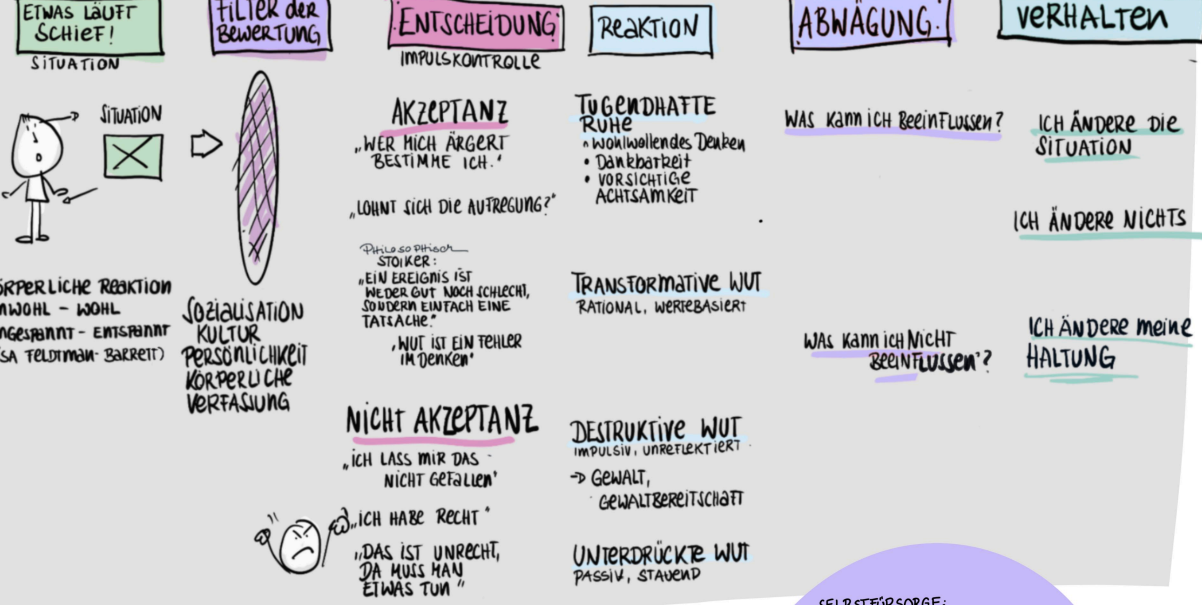 ETWAS LÄUFT
SCHIEF!
SITUATION
SITUATION
KÖRPERLICHE REAKTION
UNWOHL - WOHL
ANGESPANNT - ENTSPANNT
FELDTMAN-BARRETT)
FILTER der
BEWERTUNG
SOZIALISATION
KULTUR
PERSÖNLICHKEIT
KÖRPERLICHE
VERFASSUNG
ENTSCHEIDUNG
IMPULSKONTROLLE
AKZEPTANZ
„WER MICH ÄRGERT
BESTIMME ICH."
„LOHNT SICH DIE AUFREGUNG?"
Philosophisch
STOIKER:
„EIN EREIGNIS IST
WEDER GUT NOCH SCHLECHT,
SONDERN EINFACH EINE
TATSACHE."
„WUT IST EIN FEHLER
IM DENKEN"
NICHT AKZEPTANZ
„ICH LASS MIR DAS
NICHT GEFALLEN"
„ICH HABE RECHT"
„DAS IST UNRECHT,
DA MUSS MAN
ETWAS TUN"
REAKTION
TUGENDHAFTE
RUHE
• Wohlwollendes Denken
• Dankbarkeit
• VORSICHTIGE
ACHTSAMKEIT
TRANSFORMATIVE WUT
RATIONAL, WERTEBASIERT
DESTRUKTIVE WUT
IMPULSIV, UNREFLEKTIERT
→ GEWALT,
GEWALTBEREITSCHAFT
UNTERDRÜCKTE WUT
PASSIV, STAUEND
ABWÄGUNG:
WAS KANN ICH BEEINFLUSSEN?
WAS KANN ICH NICHT
BEEINFLUSSEN"?
VERHALTEN
ICH ÄNDERE DIE
SITUATION
ICH ÄNDERE NICHTS
ICH ÄNDERE MEINE
HALTUNG
SELBSTFÜRSORGE: